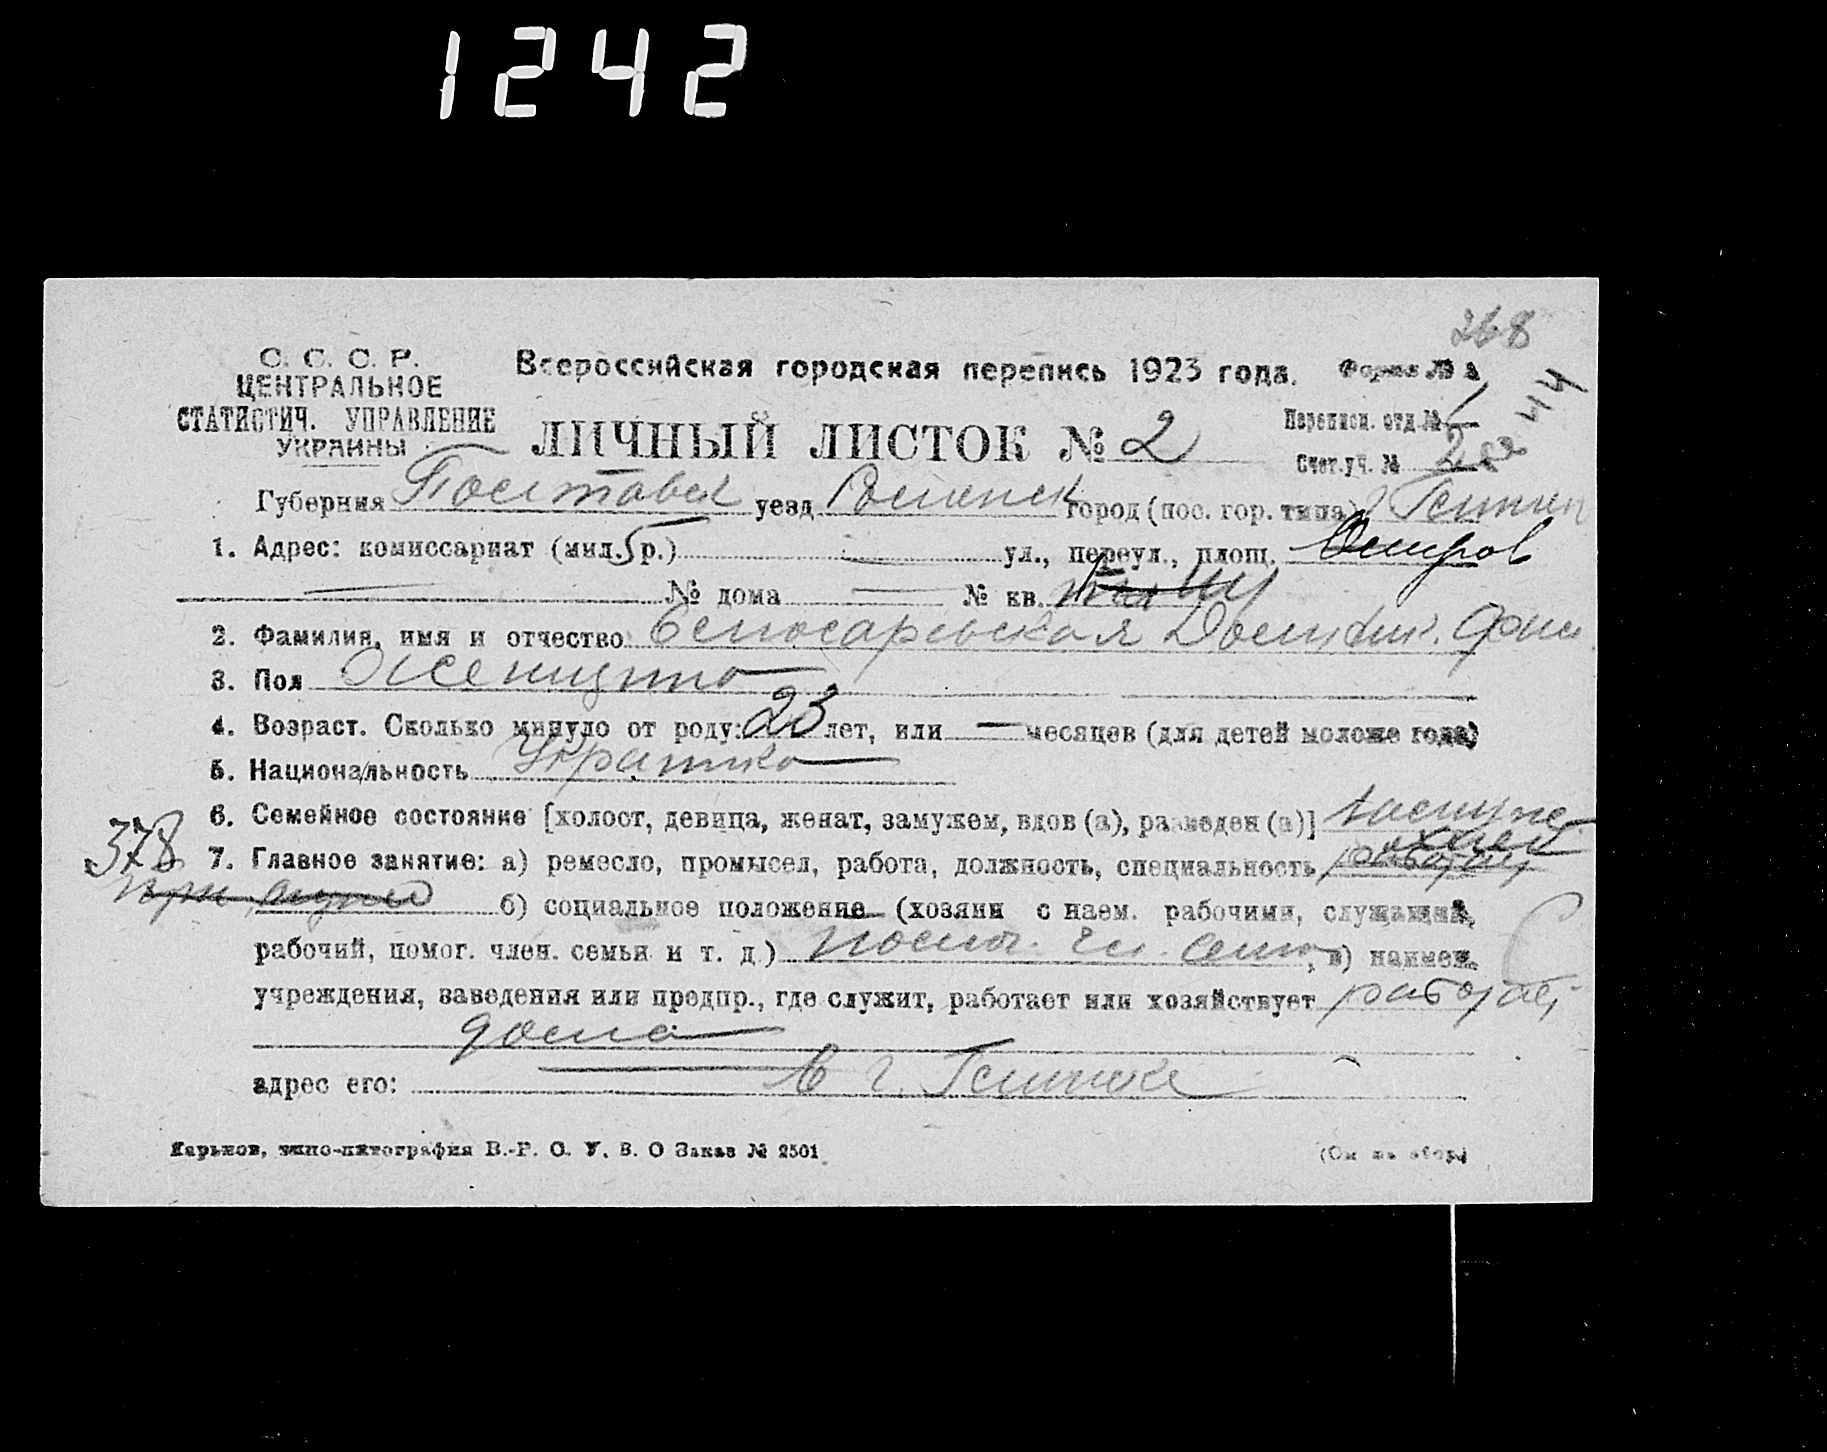 1242
268
С. С. С. Р.
ЦЕНТРАЛЬНОЕ
СТАТИСТИЧ. УПРАВЛЕНИЕ
УКРАИНЫ
Всероссийская городская перепись 1923 года.
Форма № А
44
ЛИЧНЫЙ ЛИСТОК № 2
Переписн. отд. №
Счет. уч. № 2
Губерния Полтавск уезд Роменск город (пос. гор. типа) г.
1. Адрес: комиссариат (мил. р.) ул., переул., площ.
№ дома № кв.
2. Фамилия, имя и отчество
3. Пол Женщина
4. Возраст. Сколько минуло от роду: 23 лет, или — месяцев (для детей моложе года)
5. Национальность Украинка
6. Семейное состояние [холост, девица, женат, замужем, вдов (а), разведен (а)] замужем
378
7. Главное занятие: а) ремесло, промысел, работа, должность, специальность
б) социальное положение (хозяин с наем. рабочими, служащий,
рабочий, помог. член. семьи и т. д.) помог. чл. семьи, в) наимен.
учреждения, заведения или предпр., где служит, работает или хозяйствует работает
дома
адрес его: в г. Глинске
Харьков, типо-литография В.-Р. О. У. В. О Заказ № 2501
(См на обор.)